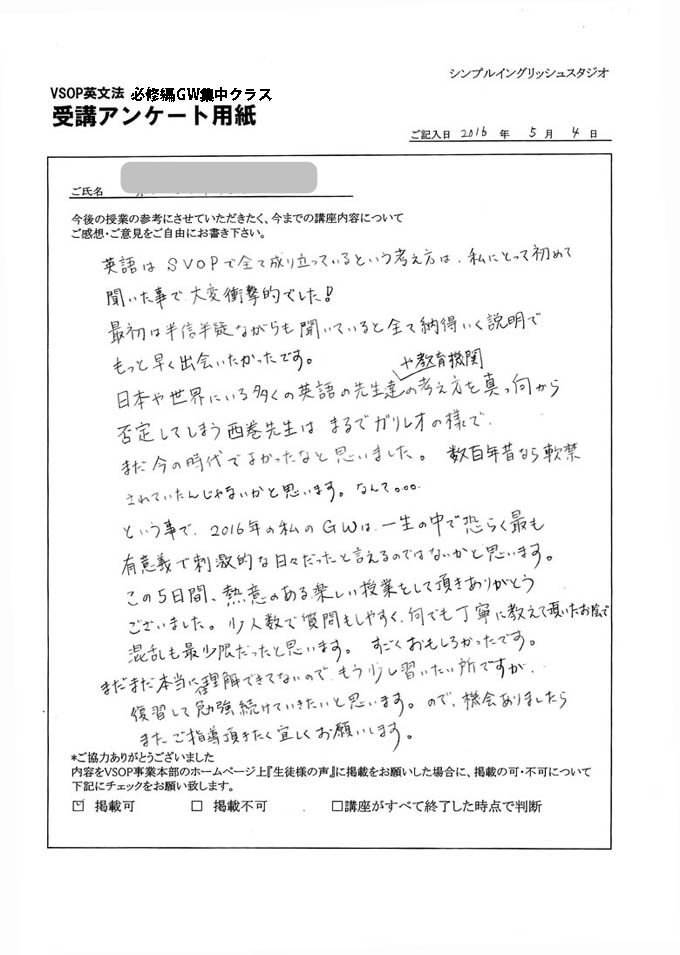 シンプルイングリッシュスタジオ
VSOP英文法 必修編GW集中クラス
受講アンケート用紙
ご記入日 2016 年 5 月 4 日
ご氏名
今後の授業の参考にさせていただきたく、今までの講座内容について
ご感想・ご意見をご自由にお書き下さい。
英語は SVOPで全て成り立っているという考え方は、私にとって初めて
聞いた事で、大変衝撃的でした!
最初は半信半疑ながらも聞いていると全て納得いく説明で
もっと早く出会いたかったです。
や教育機関
日本や世界にいる多くの英語の先生達の考え方を真っ向から
否定してしまう西巻先生は まるでガリレオの様で、
まだ今の時代でよかったなと思いました。 数百年昔なら軟禁
されていたんじゃないかと思います。なんて。。。
という事で、2016年の私のGWは、一生の中で恐らく最も
有意義で刺激的な日々だったと言えるのではないかと思います。
この5日間、熱意のある楽しい授業をして頂きありがとう
ございました。少人数で質問もしやすく、何でも丁寧に教えて頂いたお陰で
混乱も最少限だったと思います。 すごくおもしろかったです。
まだまだ本当に理解できてないので、もう少し習いたい所ですが、
復習して勉強続けていきたいと思います。ので、機会ありましたら
またご指導頂きたく宜しくお願いします。
*ご協力ありがとうございました
内容をVSOP事業本部のホームページ上『生徒様の声』に掲載をお願いした場合に、掲載の可・不可について
下記にチェックをお願い致します。
☑ 掲載可 □ 掲載不可 □講座がすべて終了した時点で判断